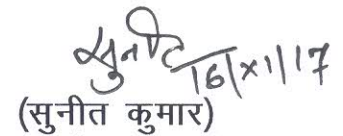 सुनीत 16/XI/17
(सुनीत कुमार)